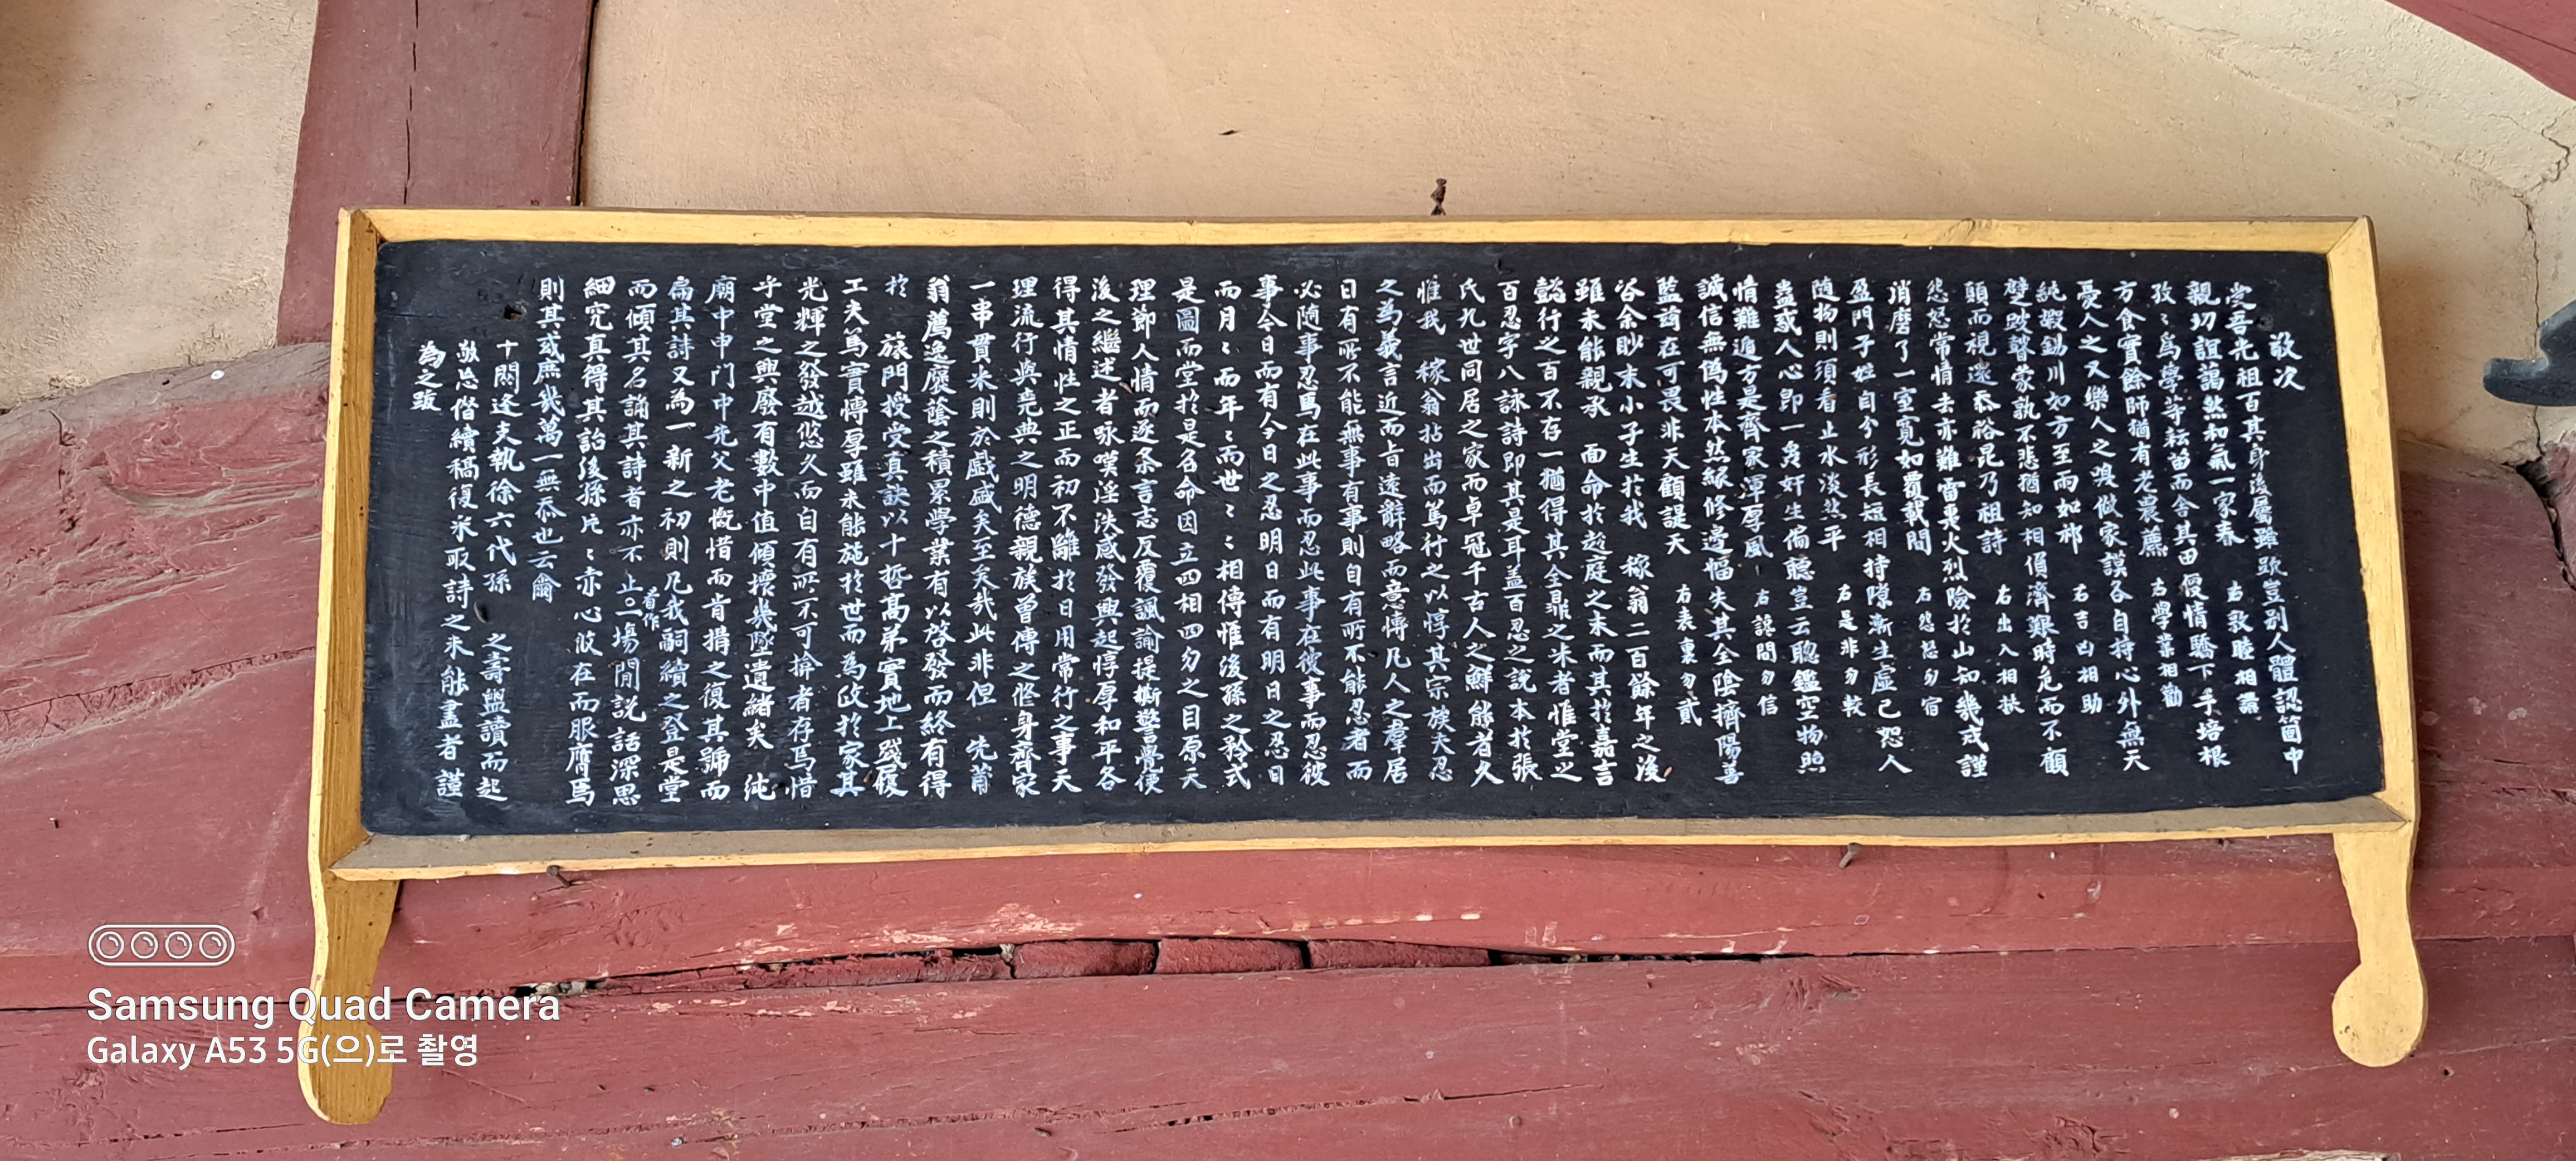 敬次
受吾先祖百其身後屬雖疎豈别人體認箇中
親切誼藹然和氣一家春 右敦睦相講
孜〻爲學等耘苗而舍其田慢情驕下手培根
方食實餘師猶有老農薦 右學業相勸
憂人之又樂人之 做家謨各自持心外無天
純嘏錫川如方至雨如祁 右吉凶相助
壁跛瞽蒙孰不悲猶知相須濟艱時危而不顧
顚而視遠忝裕昆乃祖詩 右出入相扶
怨怒常情去亦難雷 火烈險於山知幾式謹
消磨了一室寬如覆載間 右怨怒勿宿
盈門子姓自分形長短相持隙漸生虛己恕人
隨物則須看止水淡然平 右是非勿較
蠱惑人心卽一 奸生偏聽豈云聰鑑空物照
情難遁方是齊家渾厚風 右讒間勿信
誠信無僞性本然緣修邊幅失其全陰擠陽善
監茲在可畏非天顧諟天 右表裏勿貳
咨余眇末小子生於我 稼翁二百餘年之後
雖未能親承 面命於趍庭之末而其於嘉言
懿行之百不存一猶得其全鼎之 者惟堂之
百忍字八詠詩即其是耳盖百忍之說本於張
氏九世同居之家而卓冠千古人之鮮能者久
惟我 稼翁拈出而篤行之以惇其宗族夫忍
之爲義言近而旨遠辭略而意博凡人之羣居
日有所不能無事有事則自有所不能忍者而
必隨事忍焉在此事而忍此事在彼事而忍彼
事今日而有今日之忍明日而有明日之忍日
而月〻而年〻而世〻〻相傳惟後孫之矜式
是圖而堂於是名命因立四相四勿之目原天
理節人情而逐条言志反覆諷諭提撕警覺使
後之繼述者咏嘆淫泆感發興起惇厚和平各
得其情性之正而初不離於日用常行之事天
理流行與堯典之明德親族曾傳之修身齊家
一串貫來則於戱盛矣至矣哉此非但 先莆
翁薦逸蔭之積累學業有以啓發而終有得
於 旅門授受眞訣以十哲高弟實地上踐履
工夫篤實博厚雖未能施於世而爲政於家其
光輝之發越悠久而自有所不可揜者存焉惜
乎堂之興廢有數中值傾 幾墜遺緖矣 純
廟中申門中先父老慨惜而肯搆之復其號而
扁其詩又為一新之初則凡我嗣續之登是堂
而傾其名誦其詩者亦不止 一場閒說話深思
看作
細究眞得其 後孫片〻赤心的在而服膺焉
則其或庶幾萬一無忝也云爾
十閼逢 執徐六代孫 之壽盥讀而起
敬 偕續稿復 取詩之未能盡者謹
為之跋
Samsung Quad Camera
Galaxy A53 5G(으)로 촬영